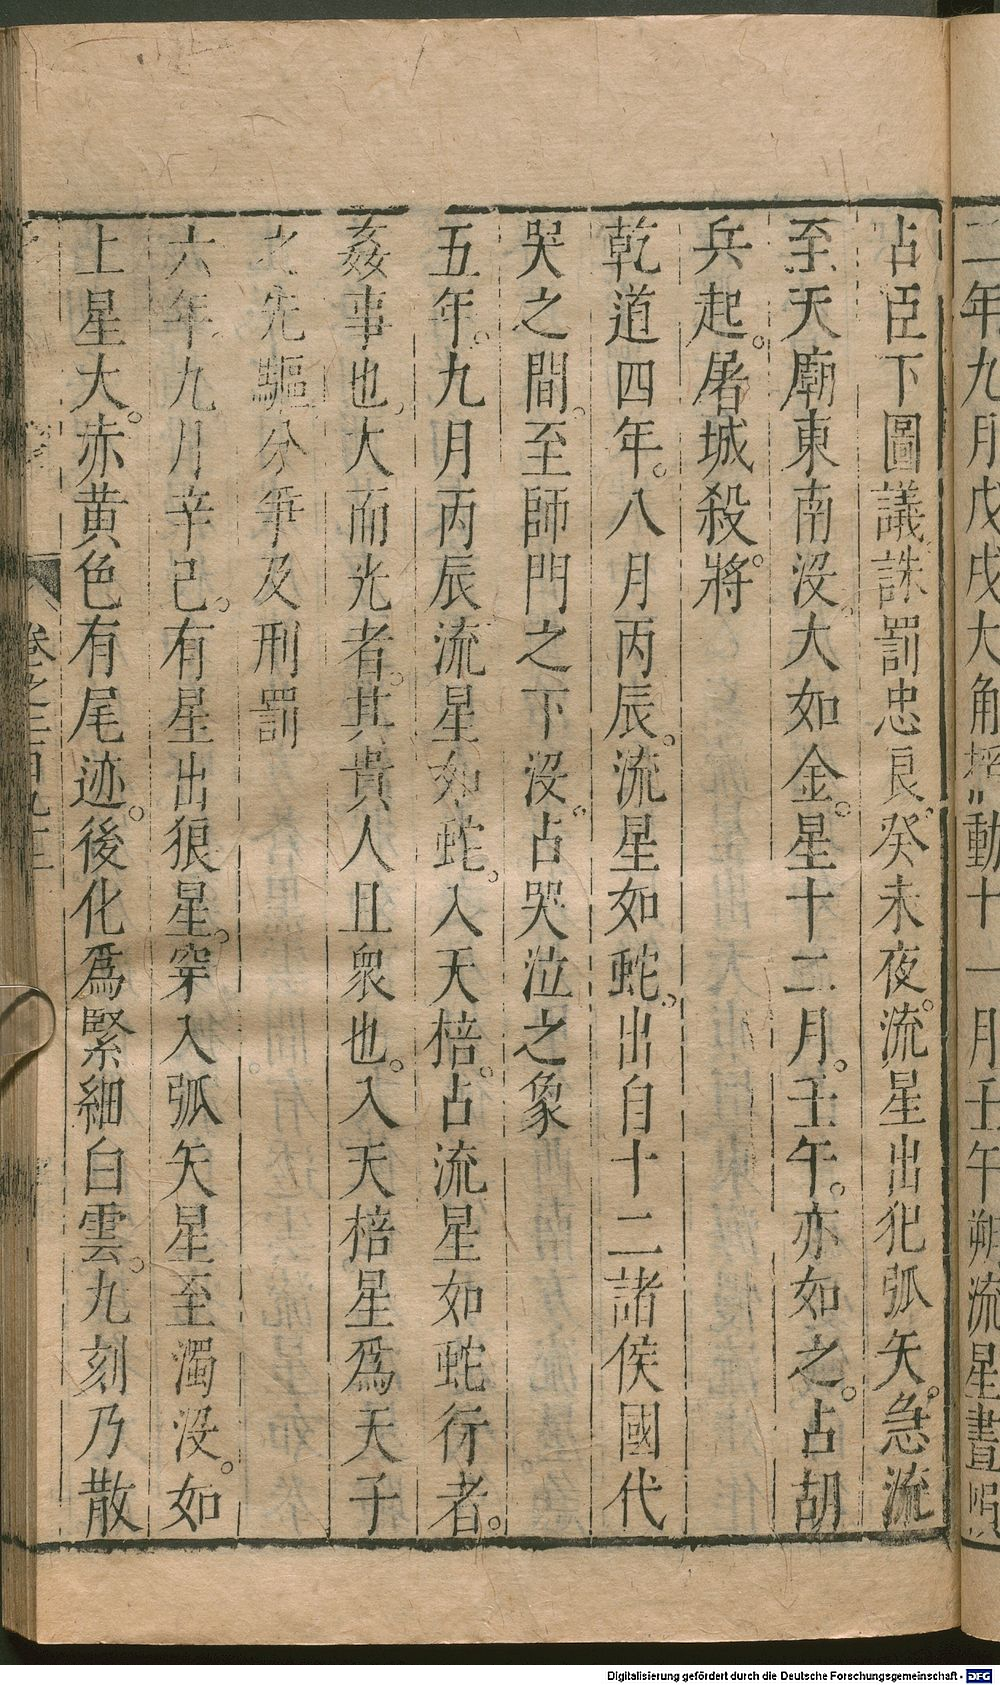 二年九月戊戌大角搖動十一月壬午朔流星晝隕
占臣下圖議誅罰忠良。癸未夜。流星出犯弧矢。急流
至天廟東南没。大如金。星十二月。壬午。亦如之。占胡
兵起。屠城殺將。
乾道四年。八月丙辰。流星如蛇。出自十二諸侯國代
哭之間。至師門之下没。占哭泣之象
五年。九月丙辰流星如蛇。入天棓。占流星如蛇行者。
姦事也。大而光者。其貴人且衆也。入天棓星爲天子
之先驅分爭及刑罰
六年。九月辛巳。有星出狼星。穿入弧矢星至濁没。如
上星大。赤黄色有尾迹。後化爲緊細白雲。九刻乃散
卷之二百九十三
Digitalisierung gefördert durch die Deutsche Forschungsgemeinschaft - DFG